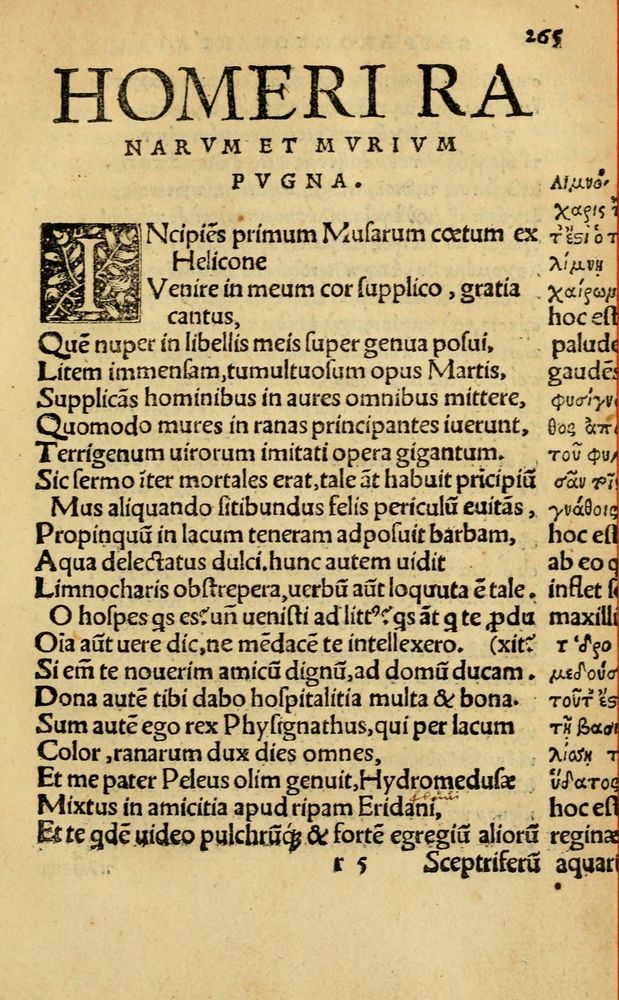 265
HOMERI RA
NARVM ET MVRIVM
PVGNA.
INcipiẽs primum Musarum cœtum ex
Helicone
Venire in meum cor supplico, gratia
cantus,
Quẽ nuper in libellis meis super genua posui,
Litem immensam, tumultuosum opus Martis,
Supplicãs hominibus in aures omnibus mittere,
Quomodo mures in ranas principantes iuerunt,
Terrigenum uirorum imitati opera gigantum.
Sic sermo ĩter mortales erat, tale ãt habuit prĩcipiũ
Mus aliquando sitibundus felis periculũ euitãs,
Propinquũ in lacum teneram adposuit barbam,
Aqua delectatus dulci. hunc autem uidit
Limnocharis obstrepera, uerbũ aũt loquuta ẽ tale.
O hospes ꝗs es? uñ uenisti ad litt⁹? ꝗs ãt ꝗ te ꝓdu
Oĩa aũt uere dic, ne mẽdacẽ te intellexero. (xit?
Si em̃ te nouerim amicũ dignũ, ad domũ ducam.
Dona autẽ tibi dabo hospitalitia multa & bona.
Sum autẽ ego rex Physignathus, qui per lacum
Color, ranarum dux dies omnes,
Et me pater Peleus olim genuit, Hydromedusæ
Mixtus in amicitia apud ripam Eridani,
Et te ꝗdẽ uideo pulchrũꝗ; & fortẽ egregiũ aliorũ
r 5 Sceptriferũ
Λιμνό⸗
χαρις
λίμνη
χαίρω
hoc est
palude
gaudẽs
φυσίγν
θος ἀπ
τοῦ φυ
σᾶν
γνάθοις
hoc est
ab eo q
inflet s
maxilli
τ ὑδρο
μεδούσ
τῇ βασι
λίσσῃ τ
ὕδατος
hoc est
reginæ
aquari